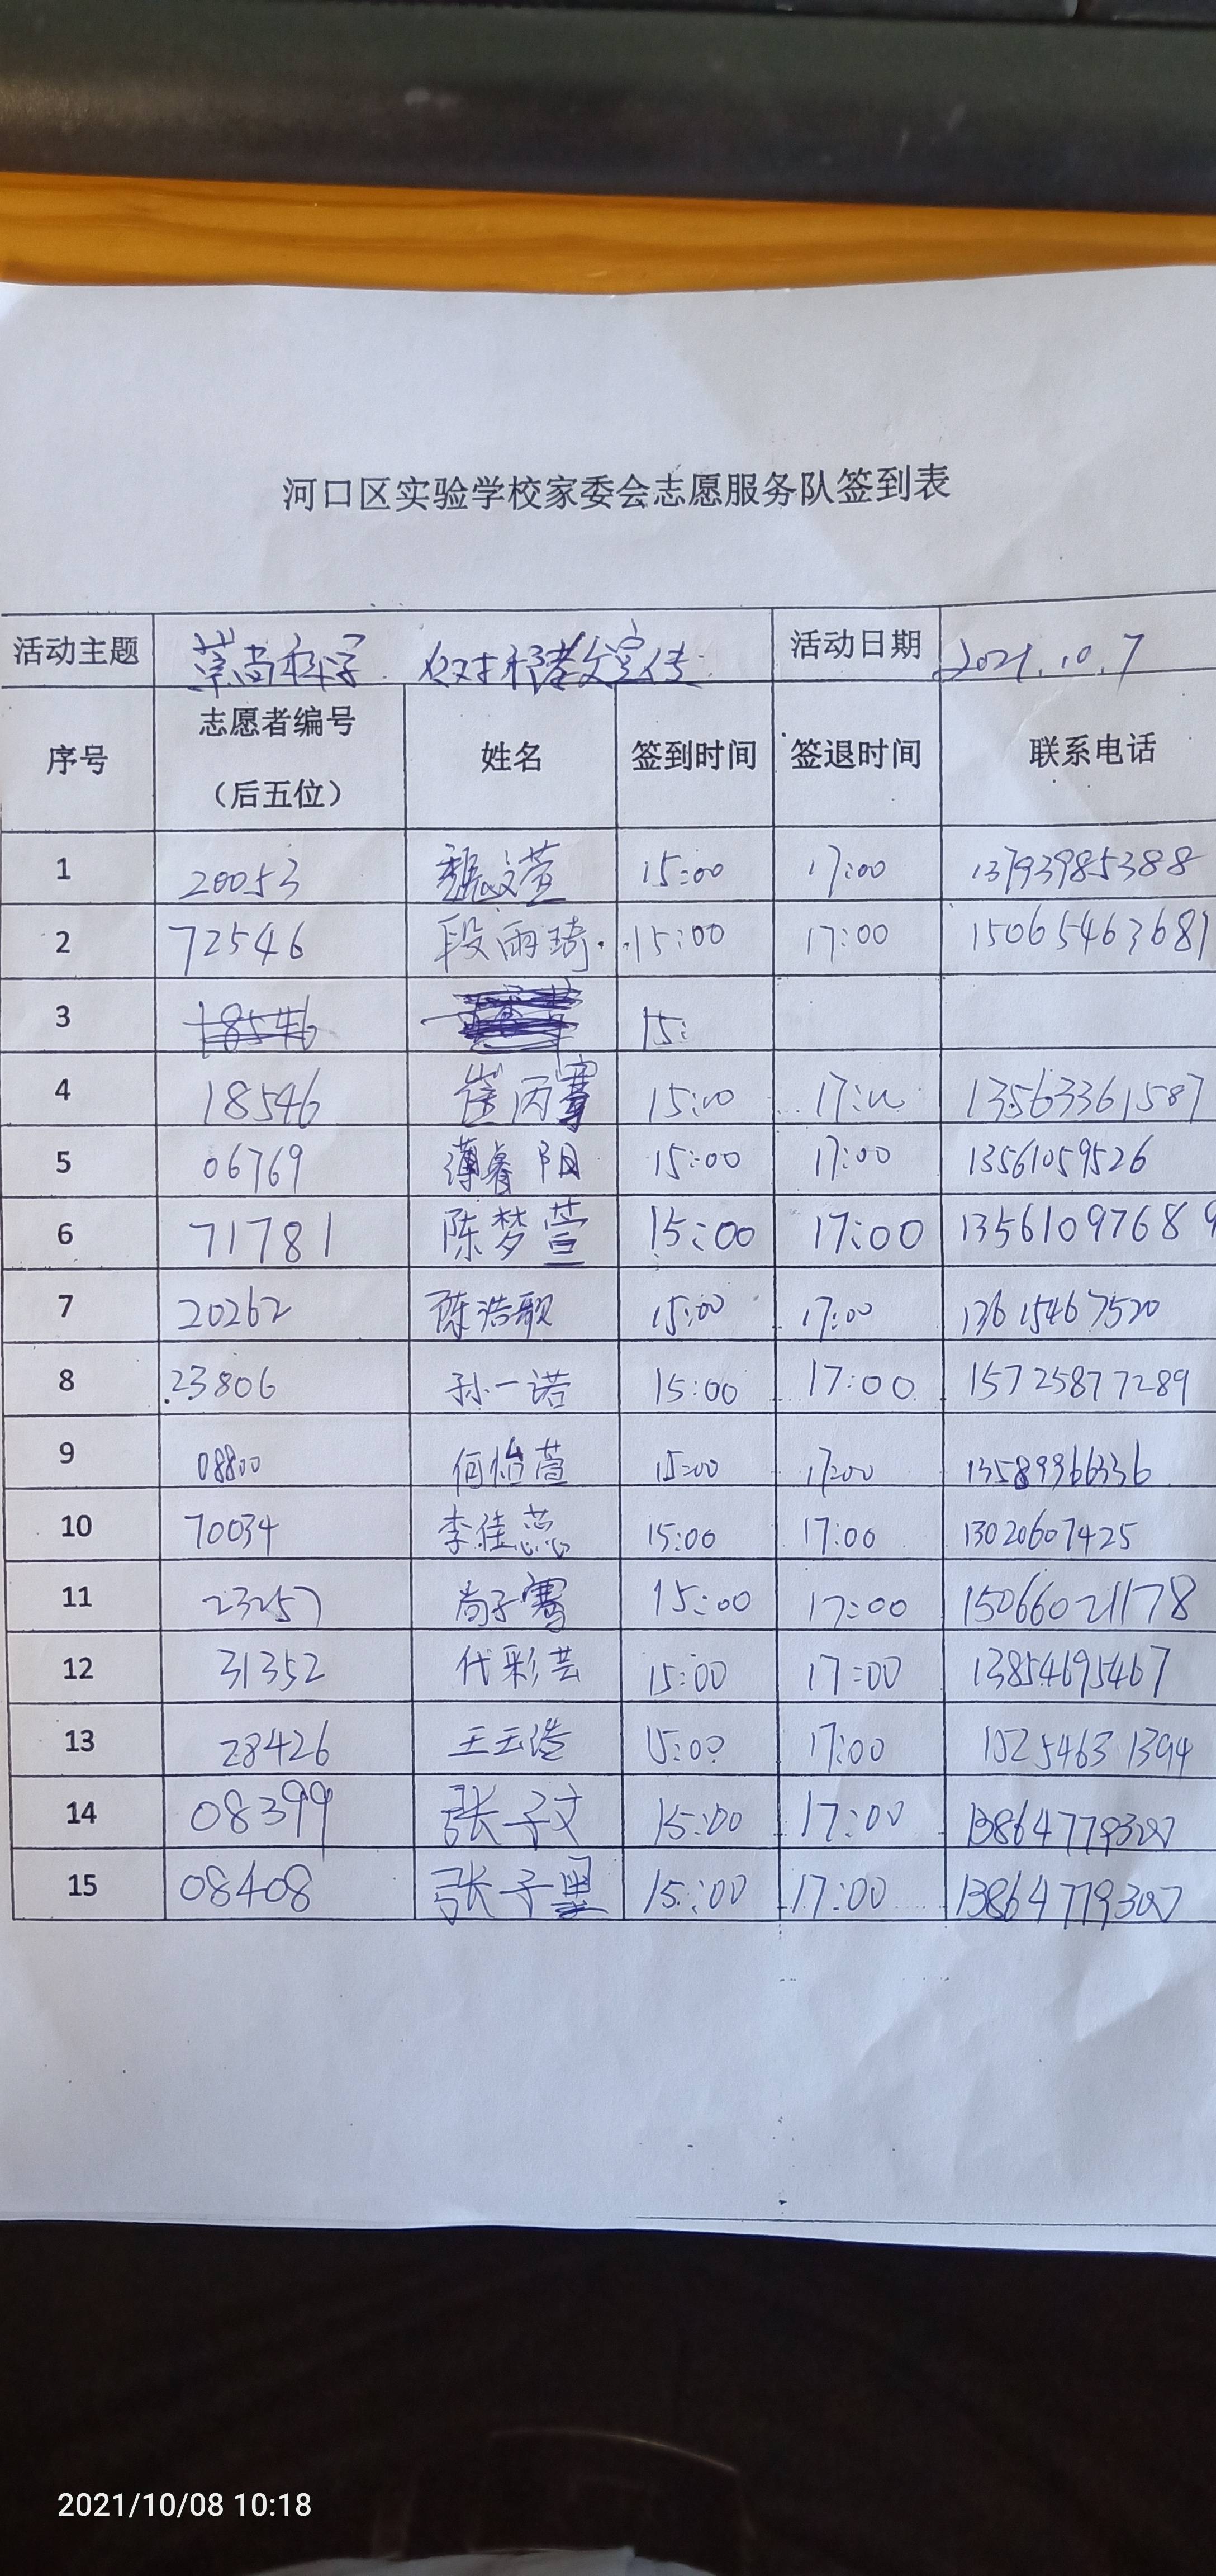 河口区实验学校家委会志愿服务队签到表
活动主题 崇尚科学 反对邪教 宣传 活动日期 2021.10.7
序号 志愿者编号（后五位） 姓名 签到时间 签退时间 联系电话
1 20053 魏文萱 15:00 17:00 13793985388
2 72546 段雨琦 15:00 17:00 15065463681
3 18546 15:
4 18546 崔丙騫 15:00 17:00 13563361587
5 06769 薄睿阳 15:00 17:00 13561059526
6 71781 陈梦萱 15:00 17:00 13561097689
7 20262 陈浩歌 15:00 17:00 13615467520
8 23806 孙一诺 15:00 17:00 15725877289
9 08800 何怡萱 15:00 17:00 13589966336
10 70034 李佳蕊 15:00 17:00 13020607425
11 23257 尚子骞 15:00 17:00 15066021178
12 31352 代彩芸 15:00 17:00 13854695467
13 28426 王玉 15:00 17:00 15254631394
14 08399 张子文 15:00 17:00 13864779307
15 08408 张子墨 15:00 17:00 13864779307
2021/10/08 10:18